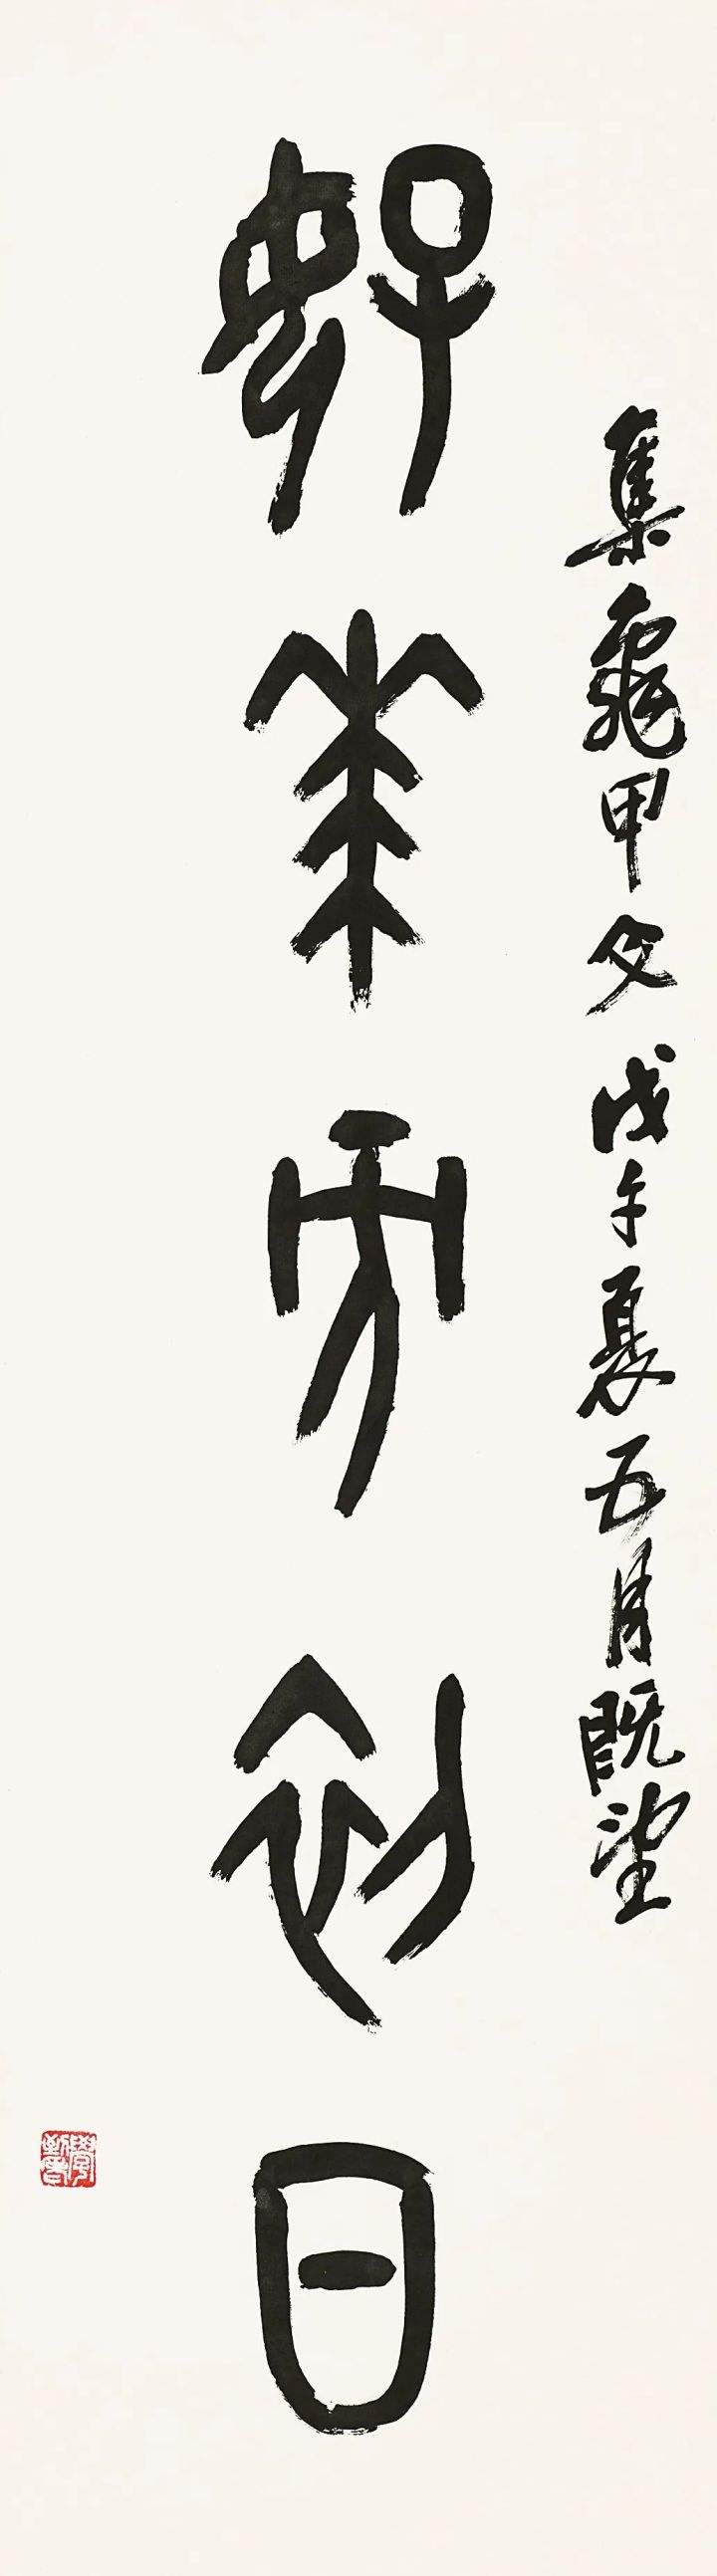 集龜甲文戊午夏五月既望
好華方初日